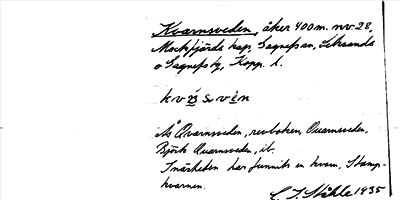 Kvarnsveden, åker 400 m. nv. 28,
Mockfjärds kap, Gagnefs sn, Leksands
o Gagnefs tg, Kopp. l.
kv
Ås Qvarnsveden, revboken, Quarnsveden,
Björk Quarnsveden, ib.
I närheten har funnits en kvarn, Stamp-
kvarnen.
Ståhle 1935